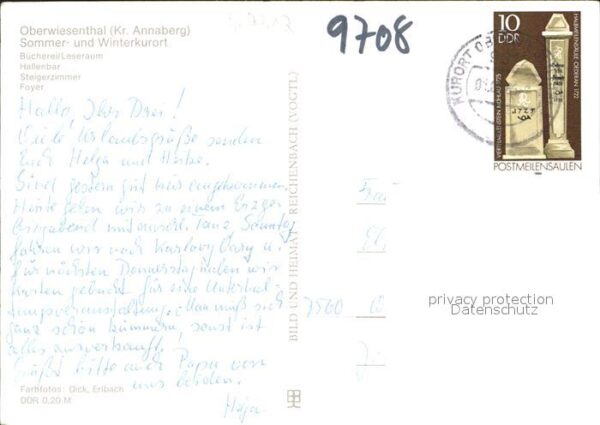 Oberwiesenthal (Kr. Annaberg)
Sommer- und Winterkurort
Bücherei/Leseraum
Hallenbar
Steigerzimmer
Foyer
9708
10
DDR
POSTMEILENSÄULEN
KURORT OB
Hallo, Ihr Drei!
Viele Urlaubsgrüße senden
Euch Helga und
Sind gestern gut hier angekommen.
Heute gehen wir zu einem Erzge-
birgsabend mit Tanz, Sonntag
fahren wir nach Karlovy Vary u.
für nächsten Donnerstag haben wir
Karten gebucht für eine Unterhal-
tungsveranstaltung. Man muß sich
ganz schön kümmern, sonst ist
alles ausverkauft.
Grüßt bitte auch Papa von
uns beiden.
Helga
BILD UND HEIMAT · REICHENBACH (VOGTL)
7500
privacy protection
Datenschutz
Farbfotos: Dick, Erlbach
DDR 0,20 M